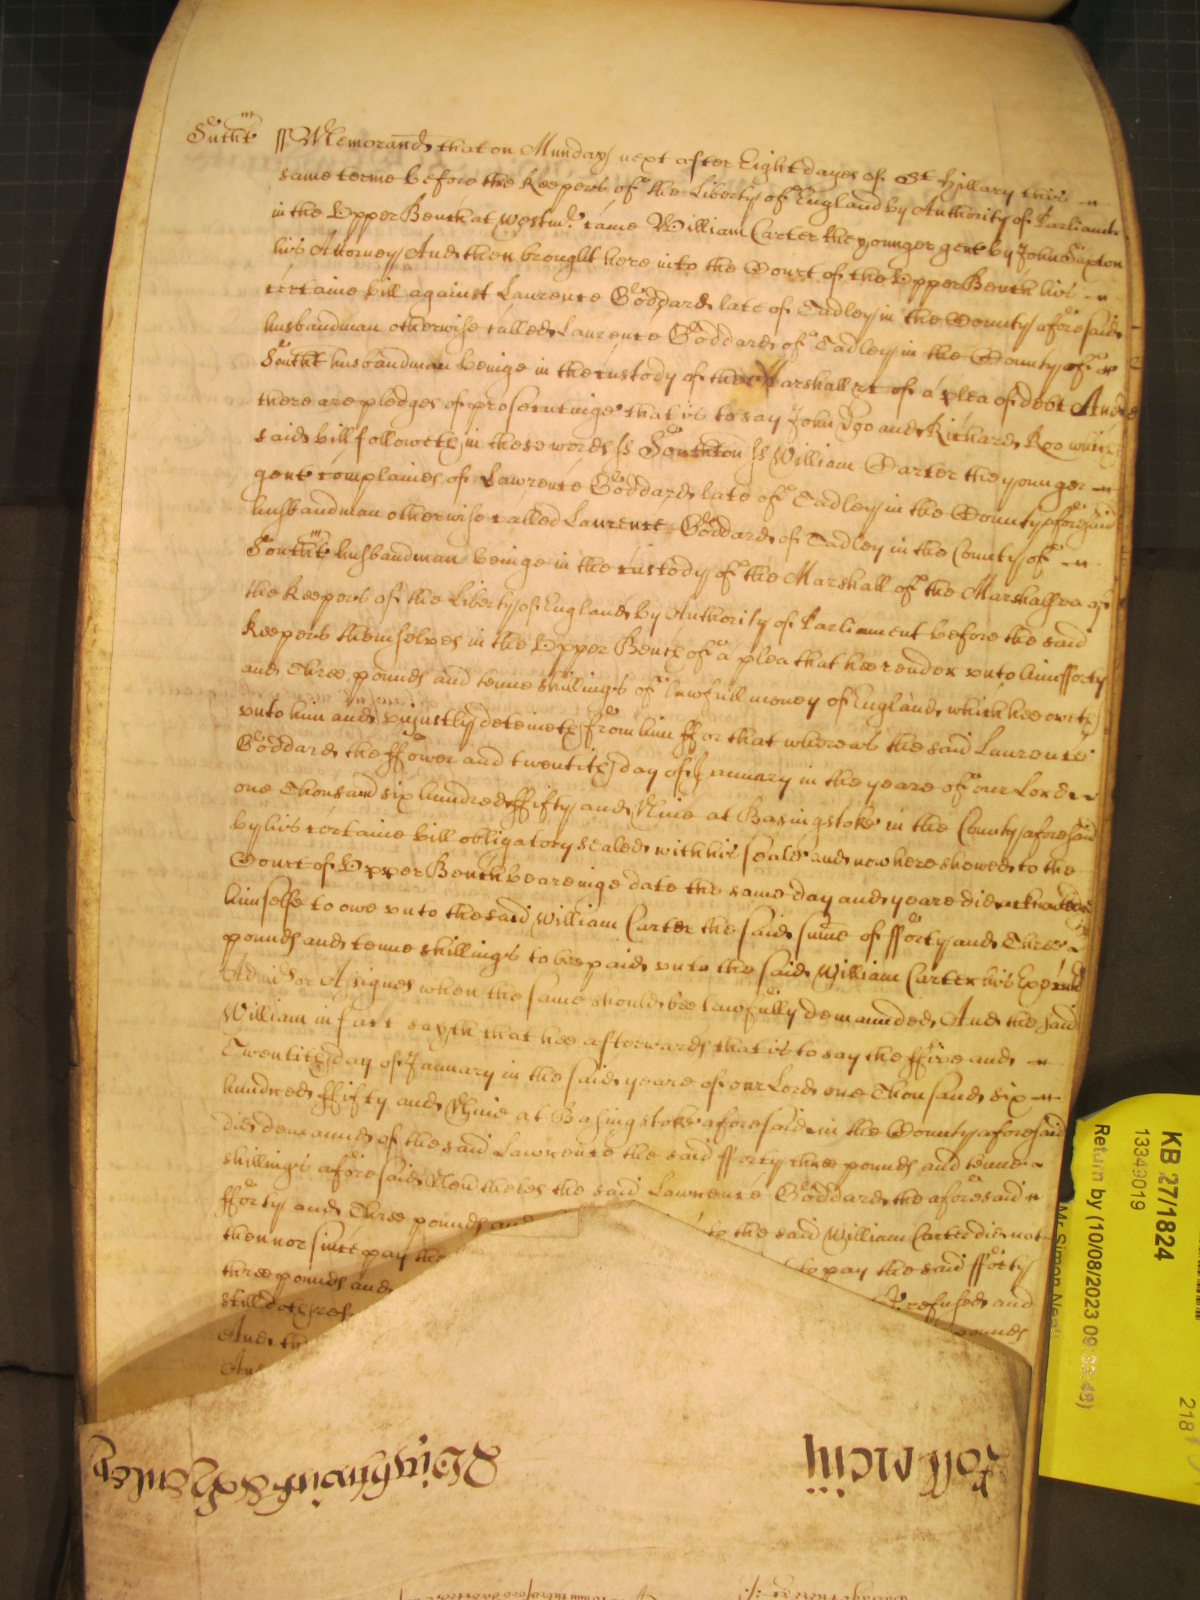 Sutht ss Memorand that on Munday next after Eight dayes of St Hillary this
same terme before the Keepers of the Liberty of England by Authority of Parliamt
in the Vpper Bench at Westmr came William Carter the younger gent by John Saxton
his Attorney And then brought here into the Court of the Vpper Bench his
certaine bill against Laurence Goddard late of Tadley in the County aforesaid
husbandman otherwise called Laurence Goddard of Tadley in the County of
Southt husbandman beinge in the custody of the Marshall &c of a plea of debt And
there are pledges of prosecutinge that is to say John Doo and Richard Roo which
said bill followeth in these words ss Southton ss William Carter the younger
gent complaines of Lawrence Goddard late of Tadley in the County aforesaid
husbandman otherwise called Laurence Goddard of Tadley in the County of
Southt husbandman beinge in the custody of the Marshall of the Marshalsea of
the Keepers of the Liberty of England by Authority of Parliament before the said
Keepers themselves in the Vpper Bench of a plea that hee render vnto him fforty
and Three pounds and tenne shillings of lawfull money of England which hee oweth
vnto him and vniustly deteineth from him ffor that whereas the said Laurence
Goddard the ffower and twentith day of January in the yeare of our Lord
one Thousand six hundred ffifty and Nine at Basingstoke in the County aforesaid
by his certaine bill obligatory sealed with his seale and now here shewed to the
Court of Vpper Bench beareinge date the same day and yeare did acknowledge
himselfe to owe vnto the said William Carter the said sume of fforty and Three
pounds and tenne shillings to bee paid vnto the said William Carter his Executrs
Admrs or Assignes when the same should bee lawfully demaunded And the said
William in fact sayth that hee afterwards that is to say the ffive and
Twentith day of January in the said yeare of our Lord one Thousand six
hundred ffifty and Nine at Basingstoke aforesaid in the County aforesaid
did demaund of the said Lawrence the said fforty three pounds and tenne
shillings aforesaid Neuertheles the said Lawrence Goddard the aforesaid
fforty and Three pounds and to the said William Carter did not
then nor since pay the to pay the said fforty
three pounds and refused and
still doth ref pounds
And th
And
Roll MCiiij
Wightwick & Henley
KB 27/1824
13349019
Return by (10/08/2023 09:33:48)
Mr Simon Neal
218